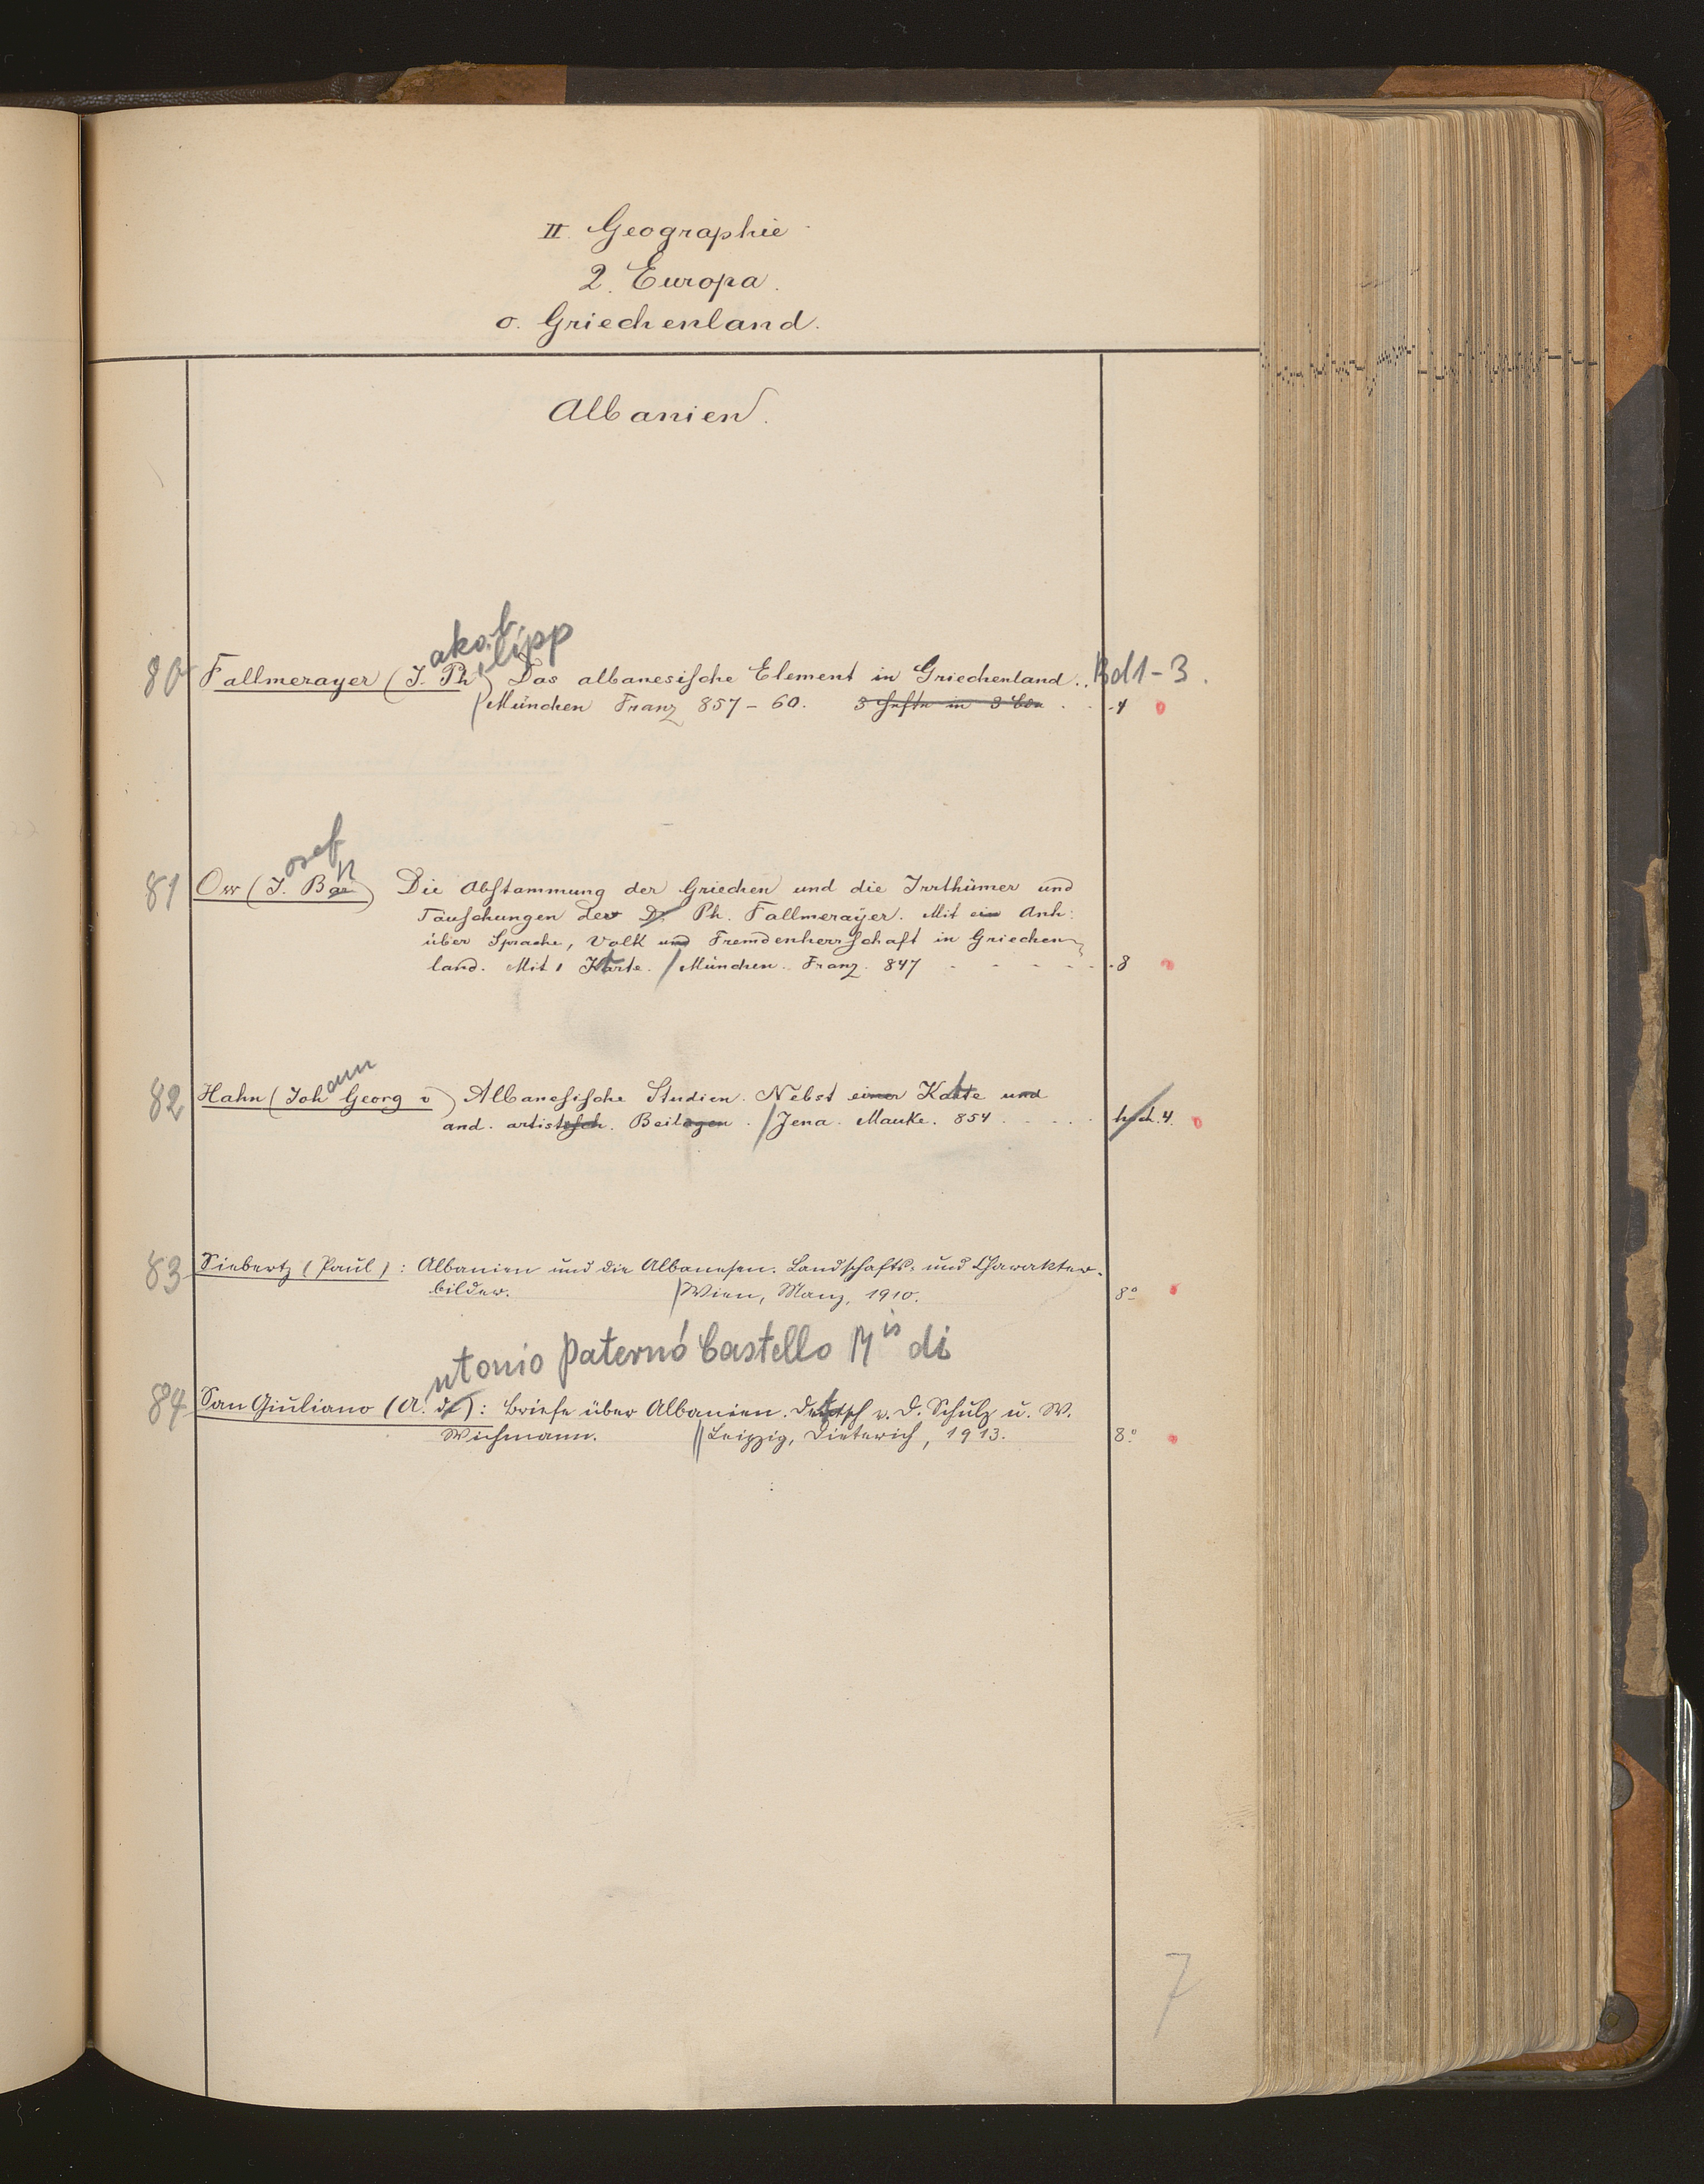 II. Geographie
2. Europa.
o. Griechenland.
Albanien.
akob ilipp
80 Fallmerayer (J. Ph) Das albanesische Element in Griechenland. Bd 1-3.
München Franz 857-60. 3 Hefte in 3 4
osef n
81 Ow (J. Bar) Die Abstammung der Griechen und die Irrthümer und
Täuschungen des Dr Ph. Fallmerayer. Mit ein Anh:
über Sprache, Volk und Fremdenherrschaft in Griechen-
land. Mit 1 Karte. / München. Franz. 847 8
ann
82 Hahn (Joh Georg v) Albanesische Studien. Nebst einer Karte und
and. artistisch. Beilagen. / Jena. Mauke. 854 4.
83 Siebertz (Paul): Albanien und die Albanesen. Landschafts- und Charakter-
bilder. / Wien, Manz, 1910. 8°
ntonio Paternó Castello Mis di
84 San Giuliano (A. di): Briefe über Albanien. Deutsch v. D. Schulz u. W.
Wichmann. // Leipzig, Dieterich, 1913. 8°
7